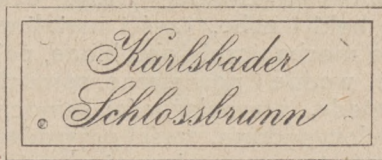 Karlsbader
Schlossbrunn